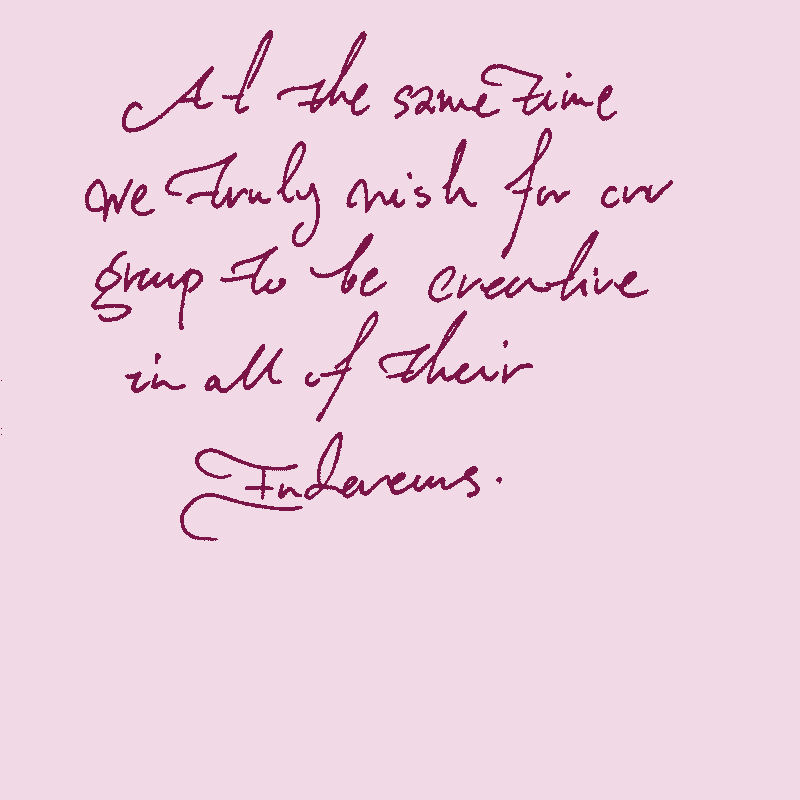 At the same time
we truly wish for our
group to be creative
in all of their
Endeveurs.